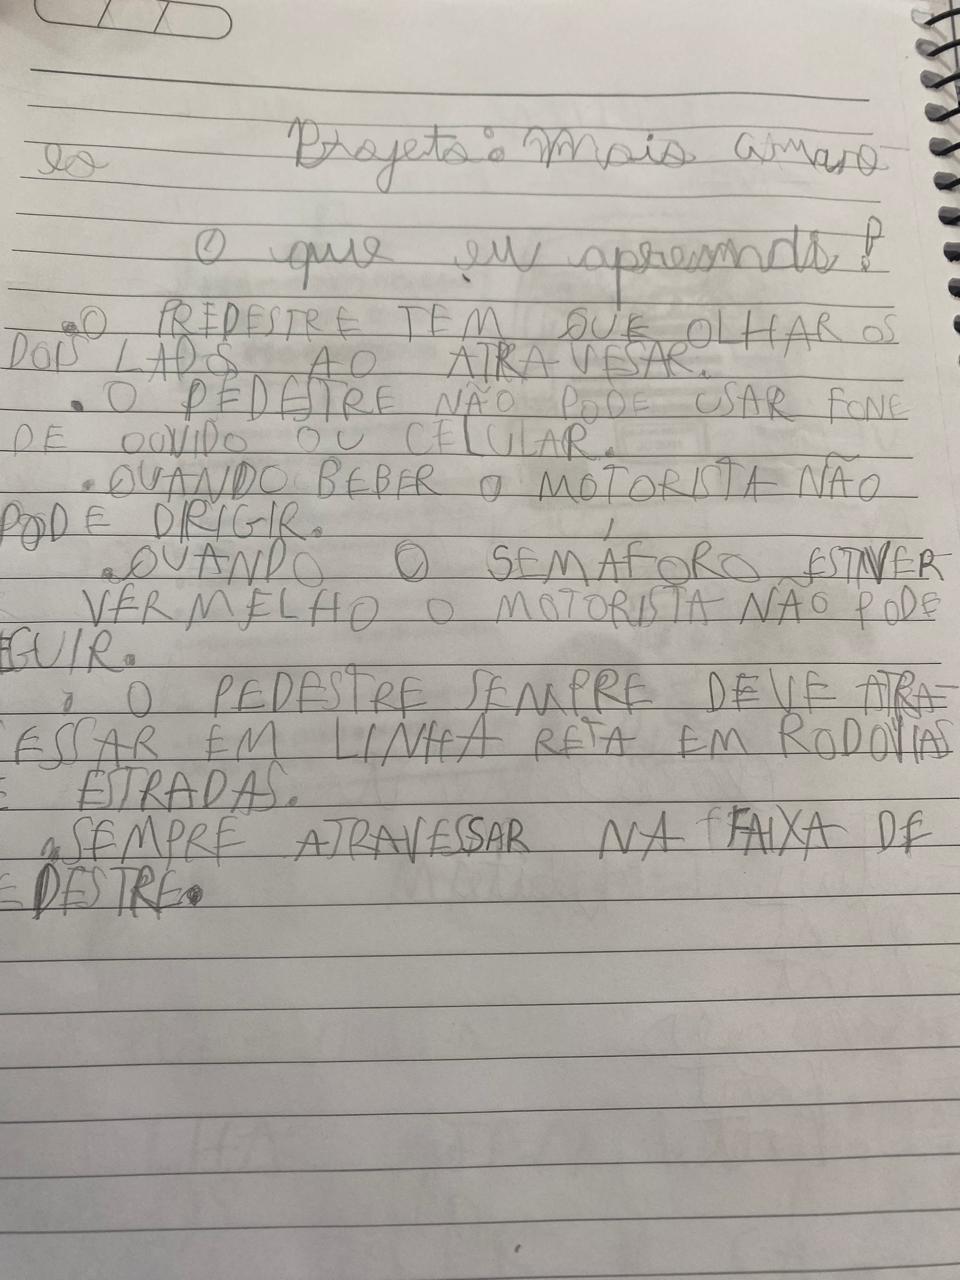 Projeto: Maio Amarelo
O que eu aprendi!
.O PREDESTRE TEM QUE OLHAR OS
DOIS LADOS AO ATRAVESAR.
. O PEDESTRE NÃO PODE USAR FONE
DE OUVIDO OU CELULAR.
. QUANDO BEBER O MOTORISTA NÃO
PODE DIRIGIR.
.QUANDO O SEMÁFORO ESTIVER
VERMELHO O MOTORISTA NÃO PODE
EGUIR.
. O PEDESTRE SEMPRE DEVE ATRA-
ESSAR EM LINHA RETA EM RODOVIAS
E ESTRADAS.
.SEMPRE ATRAVESSAR NA FAIXA DE
EDESTRE.